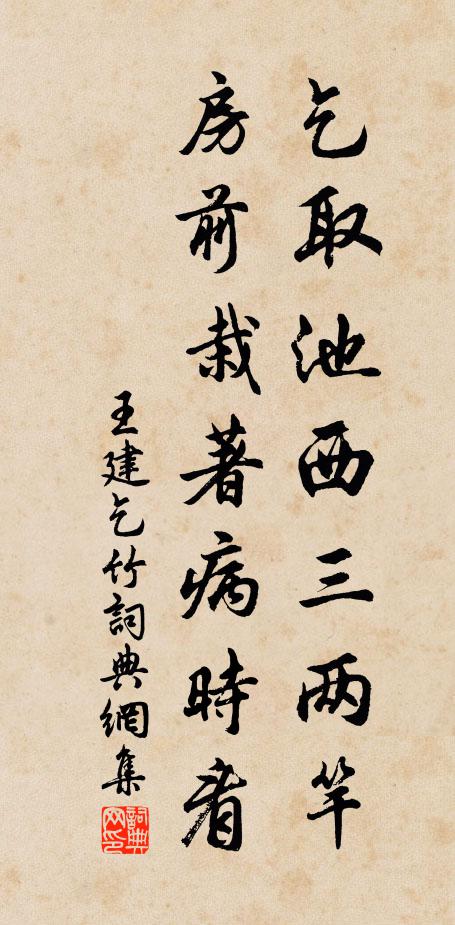 乞取池西三两竿
房前栽著病時看
王建乞竹詞典網集
詞典网印